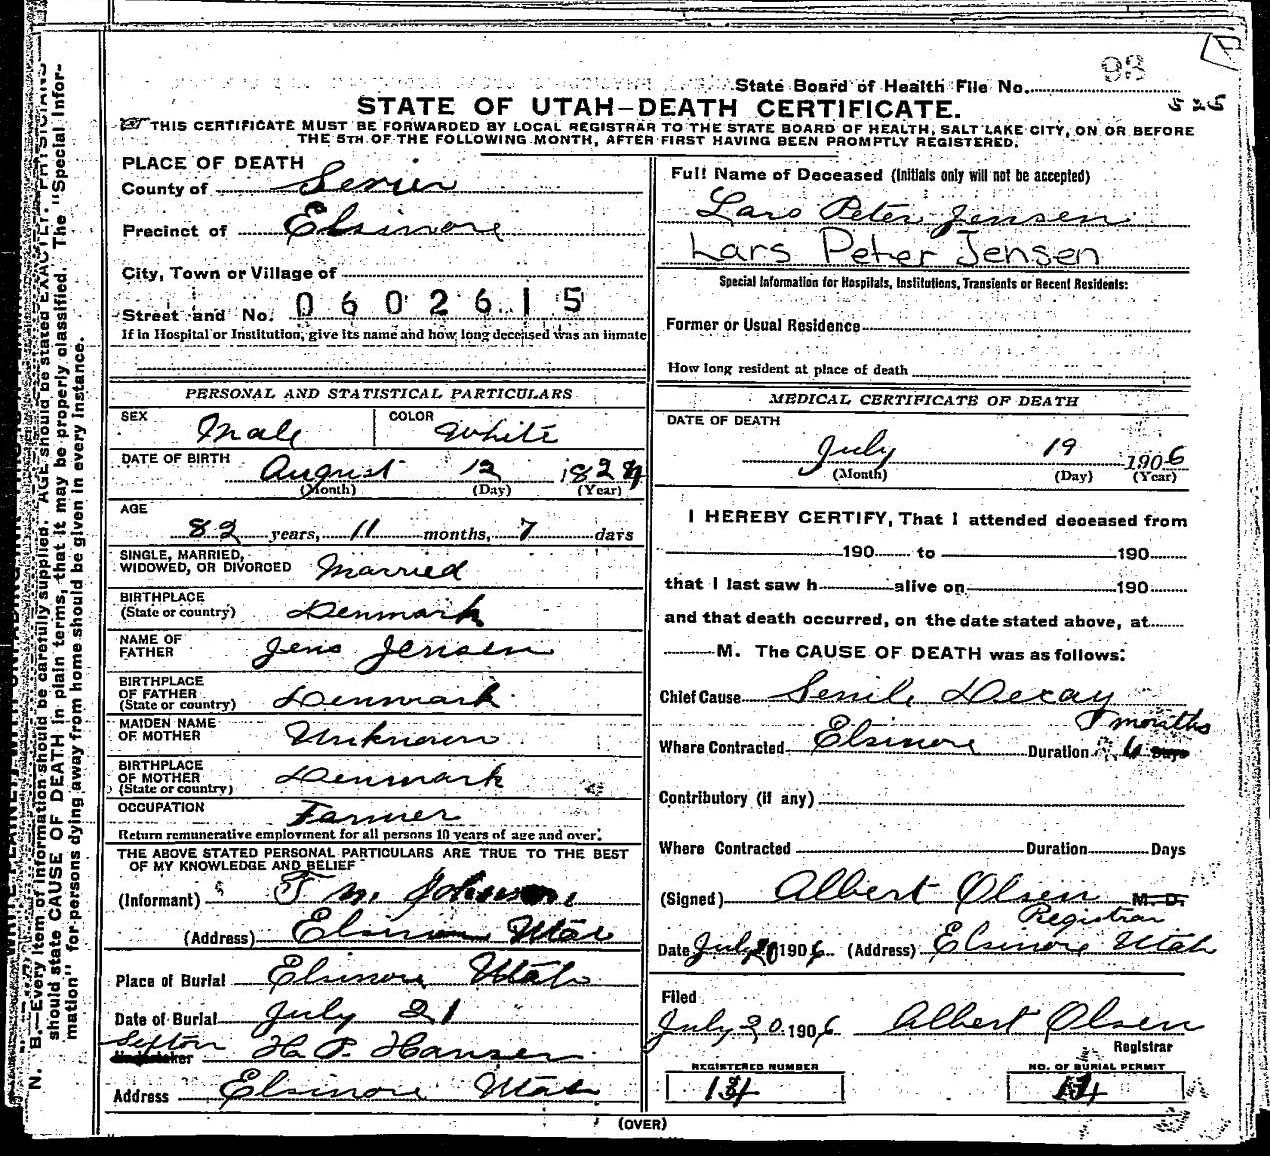 State Board of Health File No. 93
526
STATE OF UTAH—DEATH CERTIFICATE.
THIS CERTIFICATE MUST BE FORWARDED BY LOCAL REGISTRAR TO THE STATE BOARD OF HEALTH, SALT LAKE CITY, ON OR BEFORE
THE 5TH OF THE FOLLOWING MONTH, AFTER FIRST HAVING BEEN PROMPTLY REGISTERED.
PLACE OF DEATH
County of Sevier
Precinct of Elsinore
City, Town or Village of
Street and No. 0602615
If in Hospital or Institution, give its name and how long deceased was an inmate
PERSONAL AND STATISTICAL PARTICULARS
SEX Male COLOR White
DATE OF BIRTH August 12
(Month) (Day) (Year)
AGE
82 years, 11 months, 7 days
SINGLE, MARRIED,
WIDOWED, OR DIVORCED Married
BIRTHPLACE
(State or country) Denmark
NAME OF
FATHER Jens Jensen
BIRTHPLACE
OF FATHER
(State or country) Denmark
MAIDEN NAME
OF MOTHER Unknown
BIRTHPLACE
OF MOTHER
(State or country) Denmark
OCCUPATION Farmer
Return remunerative employment for all persons 10 years of age and over.
THE ABOVE STATED PERSONAL PARTICULARS ARE TRUE TO THE BEST
OF MY KNOWLEDGE AND BELIEF
(Informant)
(Address) Elsinore Utah
Place of Burial Elsinore Utah
Date of Burial July 21
Sexton
Undertaker H. P. Hansen
Address Elsinore Utah
Full Name of Deceased (Initials only will not be accepted)
Lars Peter Jensen
Lars Peter Jensen
Special Information for Hospitals, Institutions, Transients or Recent Residents:
Former or Usual Residence
How long resident at place of death
MEDICAL CERTIFICATE OF DEATH
DATE OF DEATH
July 19 1906
(Month) (Day) (Year)
I HEREBY CERTIFY, That I attended deceased from
190 to 190
that I last saw h alive on 190
and that death occurred, on the date stated above, at
M. The CAUSE OF DEATH was as follows:
Chief Cause Senile Decay
months
Where Contracted Elsinore Duration 6 Days
Contributory (if any)
Where Contracted Duration Days
(Signed) Albert Olsen M. D.
Registrar
Date July 20 1906 (Address) Elsinore Utah
Filed
July 20 1906 Albert Olsen
Registrar
REGISTERED NUMBER NO. OF BURIAL PERMIT
(OVER)
N. B.—Every item of information should be carefully supplied. AGE should be stated EXACTLY. PHYSICIANS
should state CAUSE OF DEATH in plain terms, that it may be properly classified. The "Special Infor-
mation" for persons dying away from home should be given in every instance.